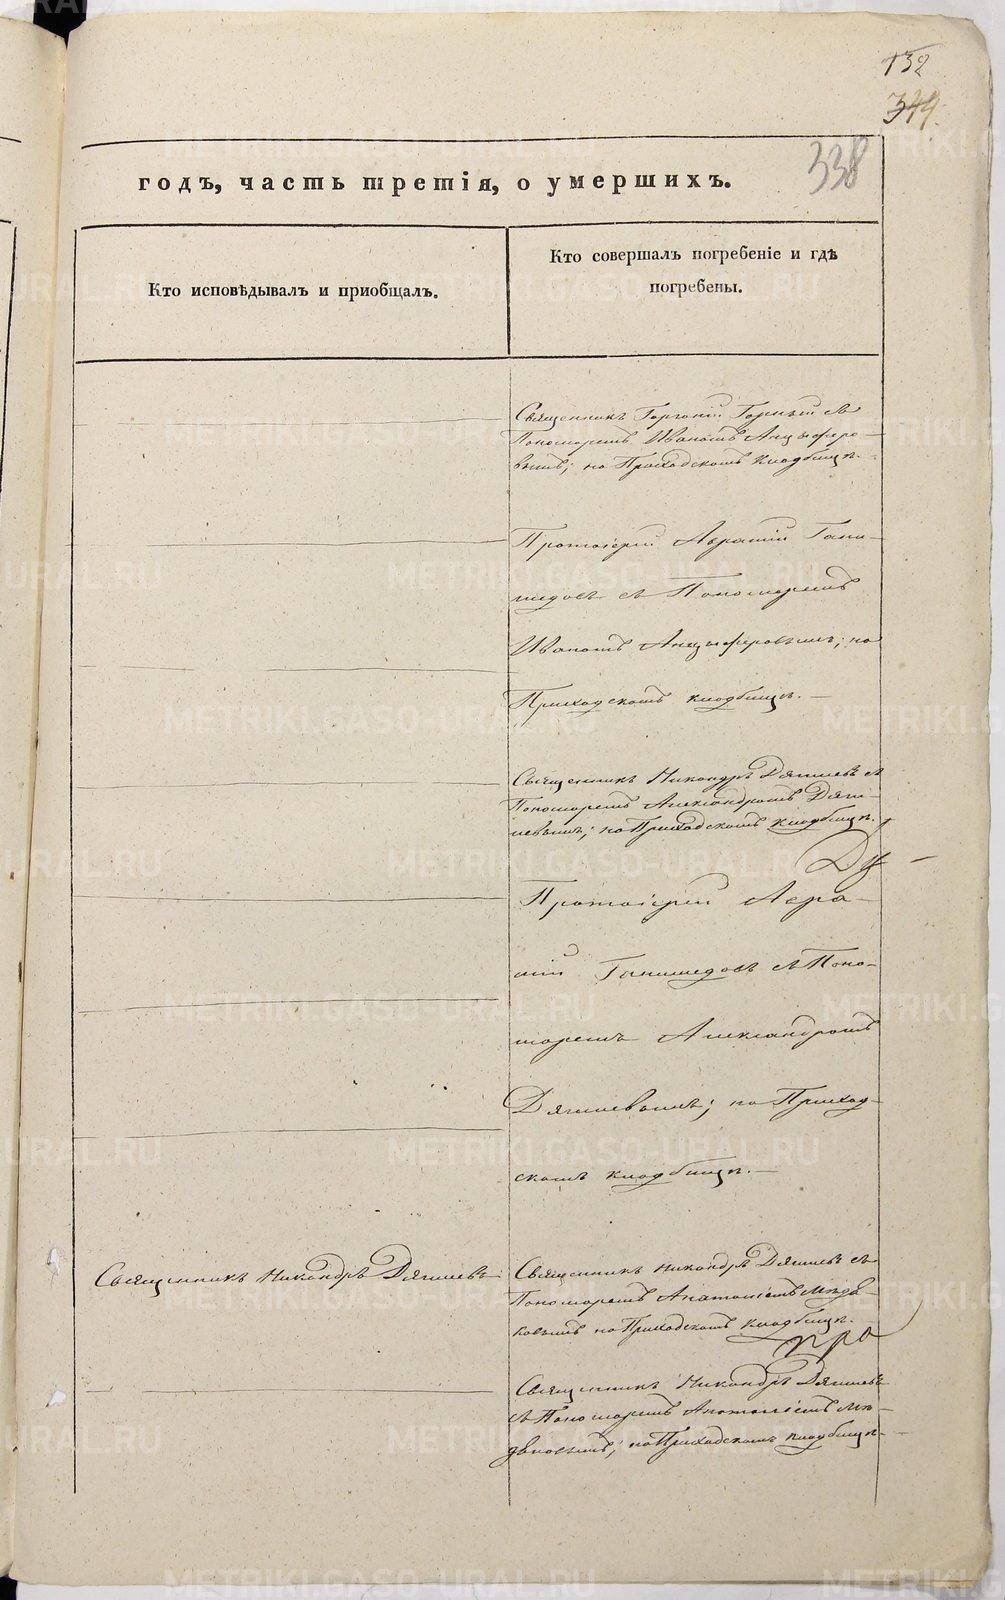 132
344.
338
годъ, часть третія, о умершихъ.
Кто исповѣдывалъ и приобщалъ.
Кто совершалъ погребеніе и гдѣ
погребены.
Священникъ Горгоній съ
Пономаремъ Иваномъ Анцыферо-
вымъ; на Приходскомъ кладбищѣ.
Протоіерей Авраамій
съ Пономаремъ
Иваномъ Анцыферовымъ; на
Приходскомъ кладбищѣ.
Священникъ Никандръ Дягилевъ съ
Пономаремъ Александромъ Дяги-
левымъ; на Приходскомъ кладбищѣ.
Протоіерей Авра-
мій съ Поно-
маремъ Александромъ
Дягилевымъ; на Приход-
скомъ кладбищѣ.
Священникъ Никандръ Дягилевъ
Священникъ Никандръ Дягилевъ съ
Пономаремъ
на Приходскомъ кладбищѣ.
Священникъ Никандръ Дягилевъ
съ Пономаремъ
на Приходскомъ кладбищѣ.
METRIKI.GASO-URAL.RU